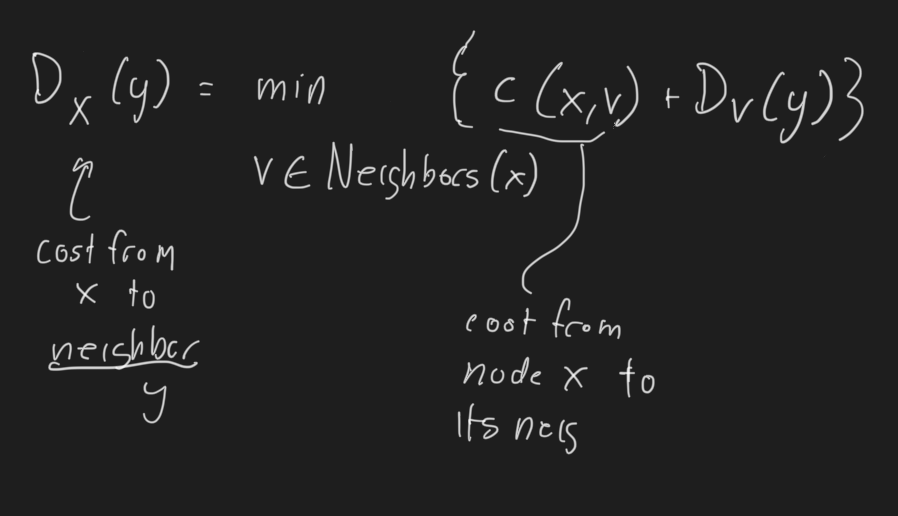 Dx(y) = min { c(x,v) + Dv(y)}
v ∈ Neighbors(x)
cost from
x to
neighbor
y
cost from
node x to
its neig